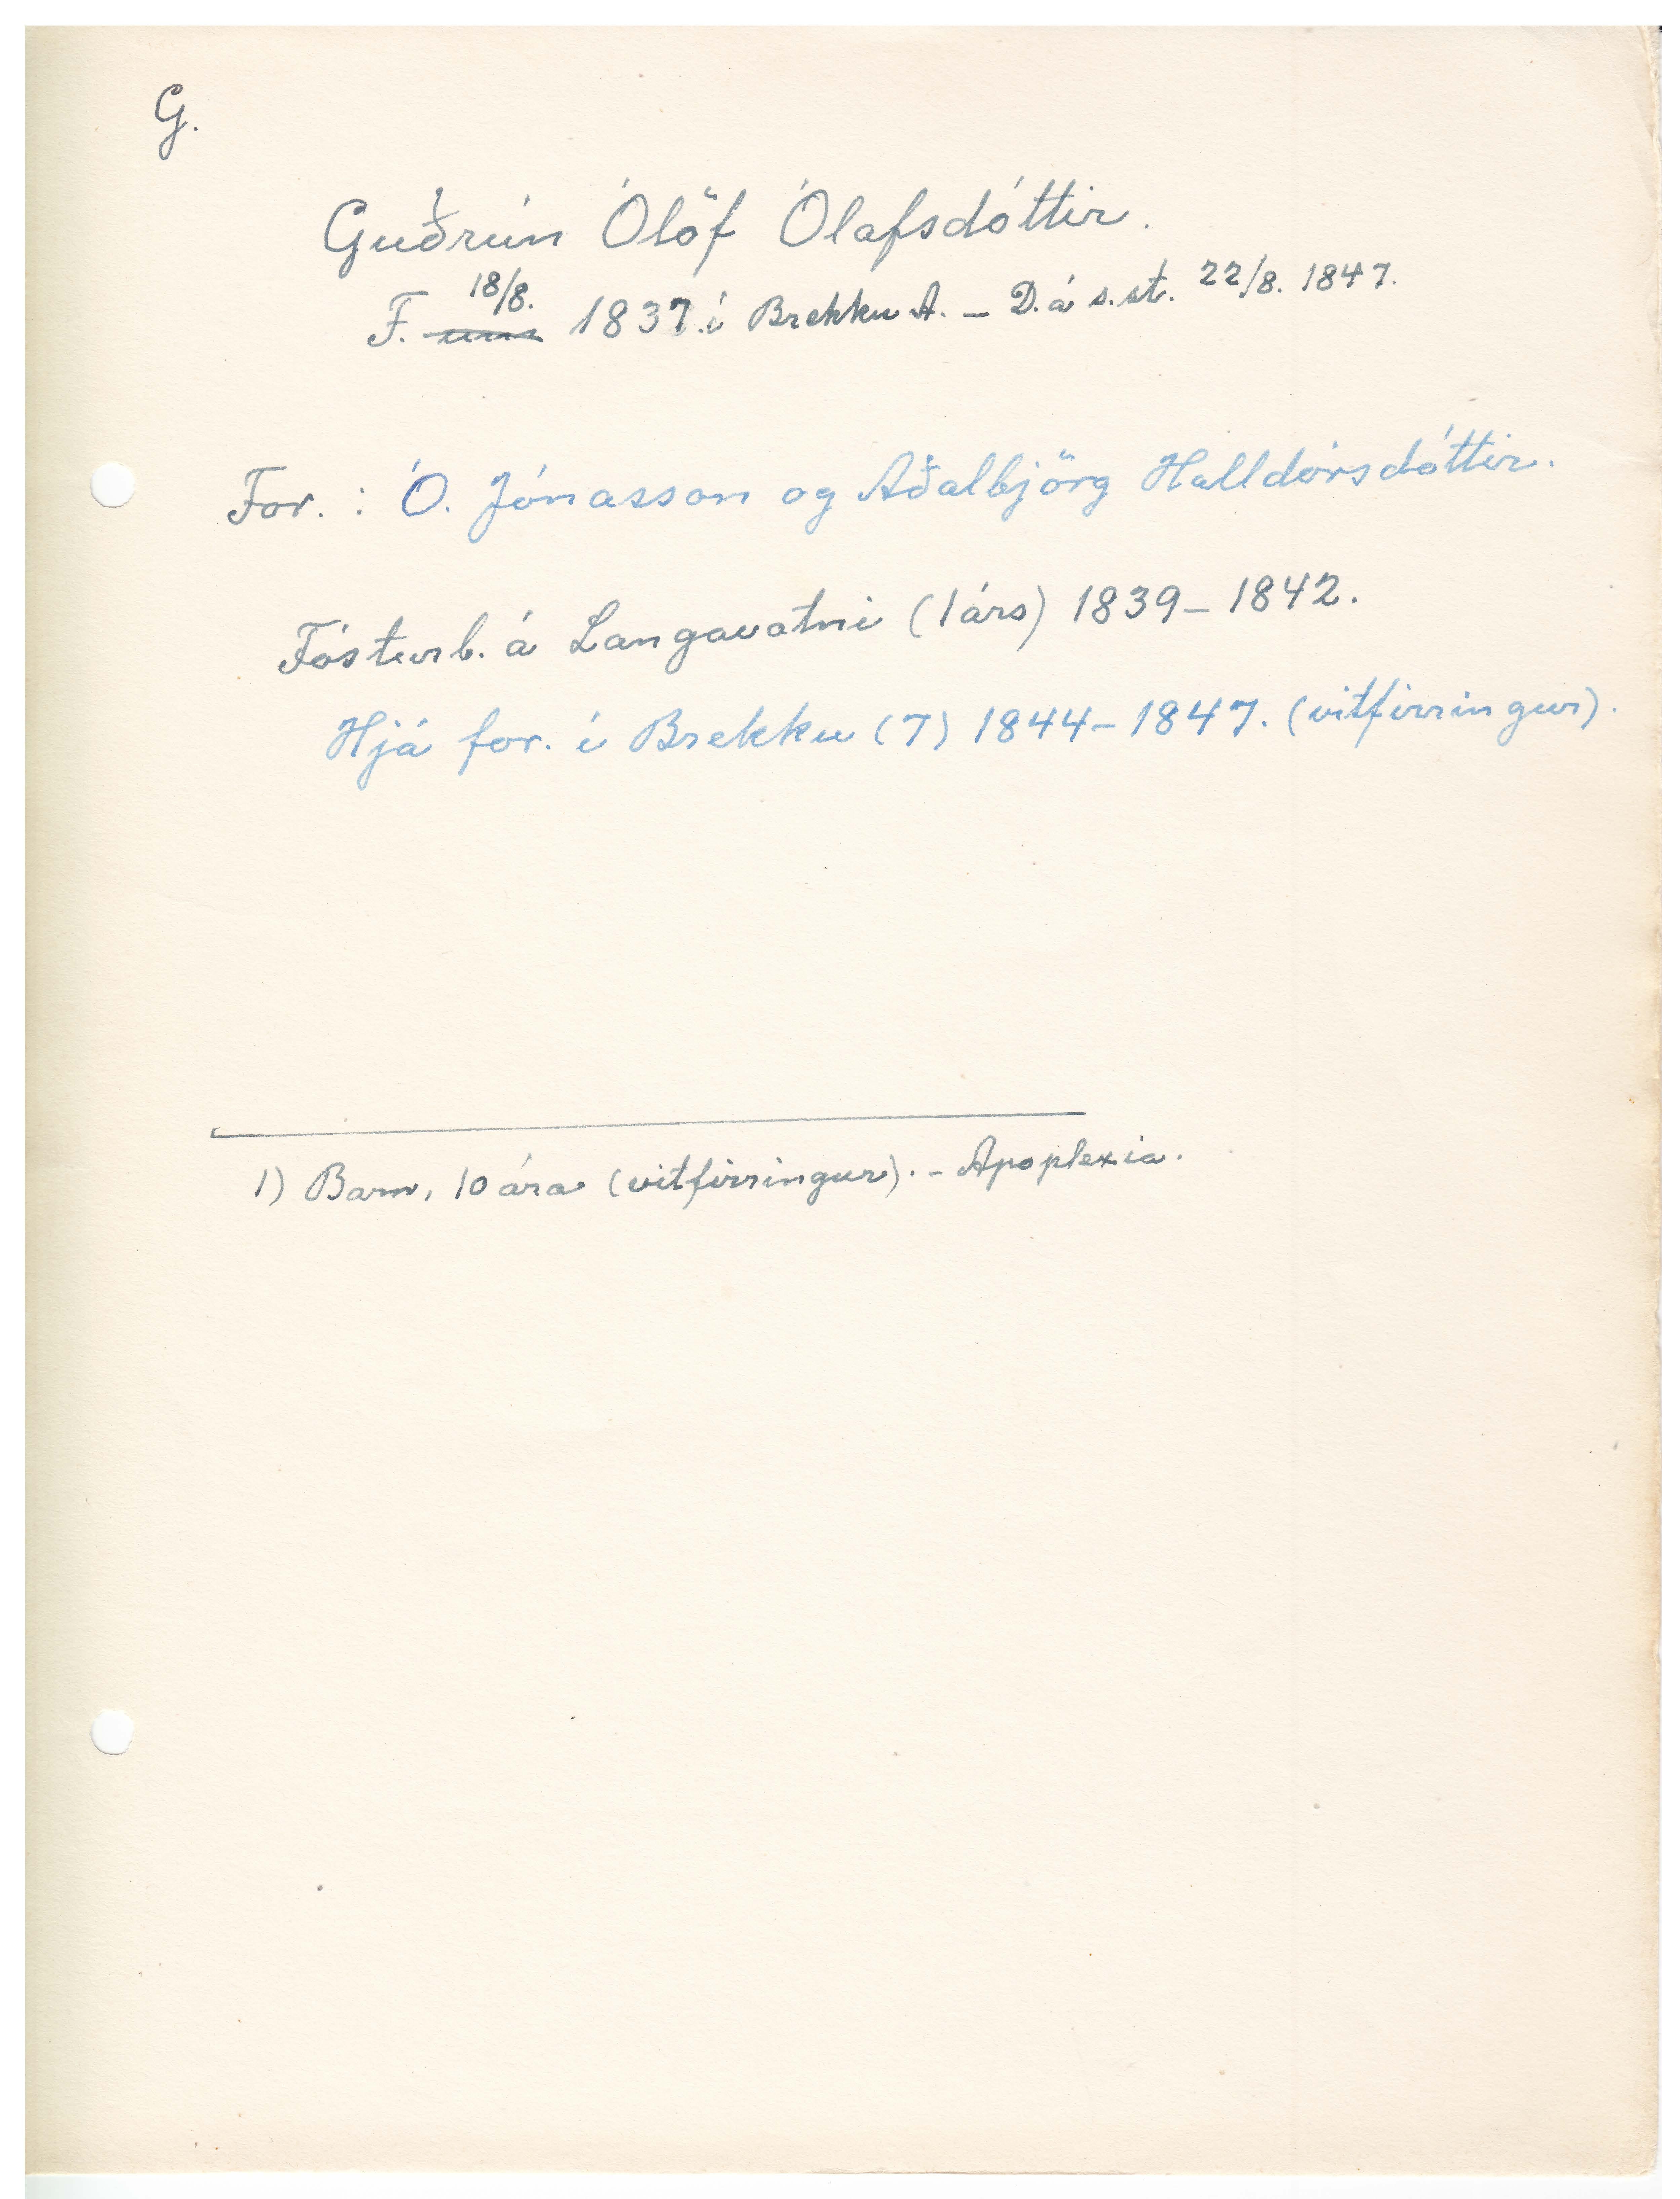 G.
Guðrún Ólöf Ólafsdóttir.
18/8.
F. um 1837. í Brekku A. – D. á s.st. 22/8. 1847.
For. : Ó. Jónasson og Aðalbjörg Halldórsdóttir.
Fósturb. á Langavatni (1 árs) 1839 – 1842.
Hjá for. í Brekku (7) 1844 – 1847. (vitfirringur).
1) Barn, 10 ára (vitfirringur). – Apoplexia.